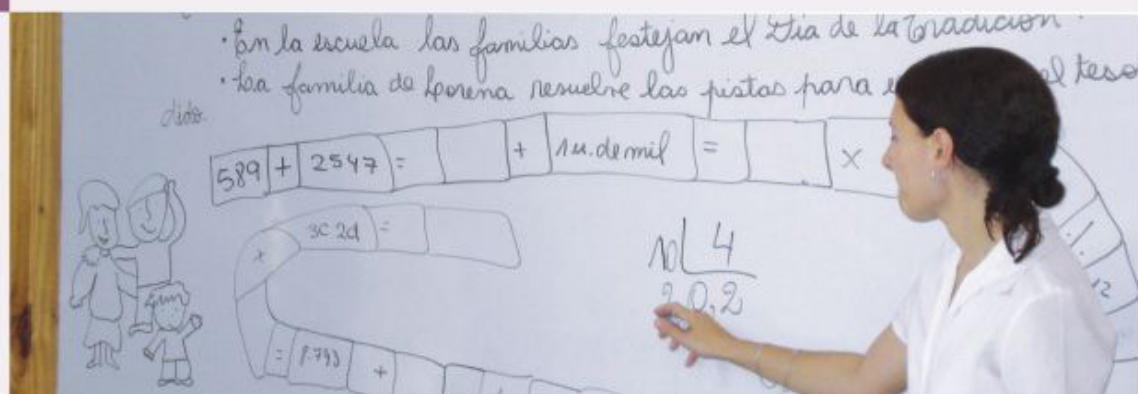 · En la escuela las familias festejan el Dia de la Tradicion.
· La familia de Lorena resuelve las pistas para el teso
dido.
589 + 2547 = + 1u.de mil = ×
+ 3c 2d =
10 4
0,2
12
= 8.793 +